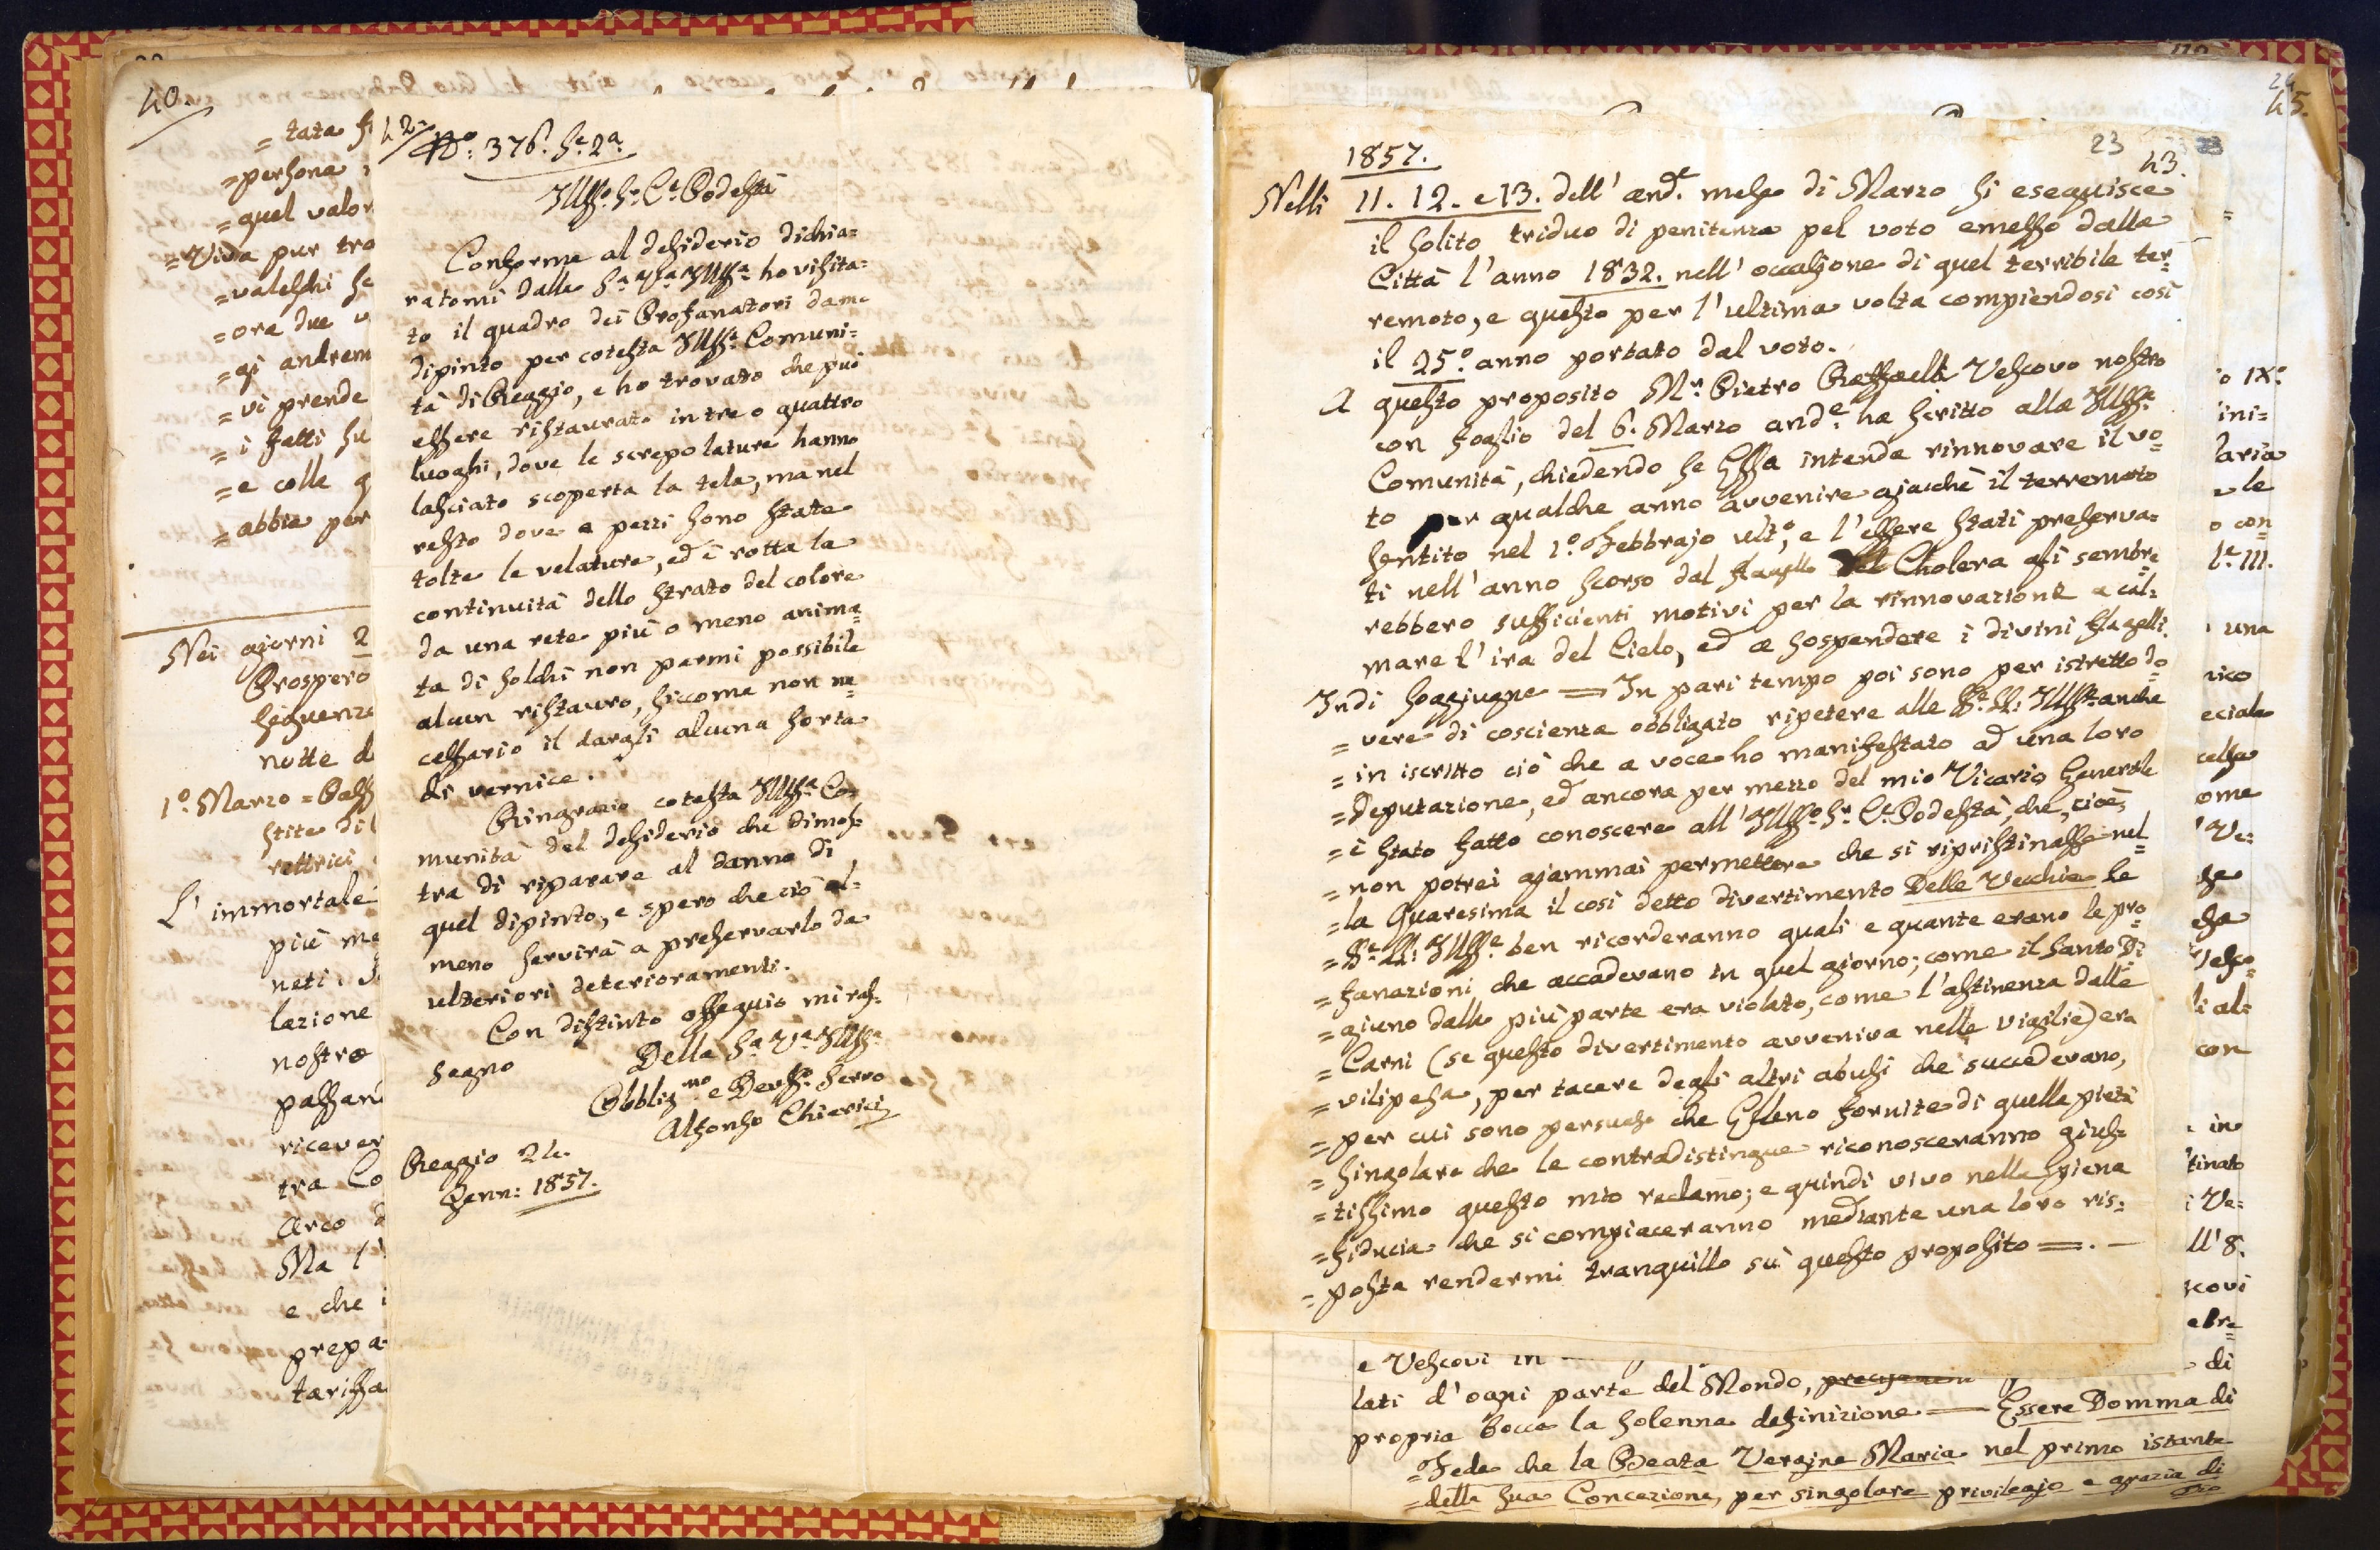 40.
= tata
= persona
= quel valor
= Viva pur tro
= valeschi
= ora due
= gi andrem
= vi prende
= i fatti su
= e colle
= abbia per
Nei giorni 2
Prospero
seguenza
notte d
1º. Marzo =
stite di
rettrici
L' immortale
più
neti.
lazione
nostra
passan
ricever
tra Co
arco d
Ma l'
e che i
prepa=
tariffa
42.
Nº: 376. Se. 2a.
Illmo. Sr. Ce. Podestà
Conforme al desiderio dichia=
ratomi dalla Sa. Va. Illma. ho visita=
to il quadro dei Profanatori da me
dipinto per cotesta Illma. Comuni=
tà di Reggio, e ho trovato che può
essere ristaurato in tre o quattro
luoghi, dove le screpolature hanno
lasciato scoperta la tela, ma nel
resto dove a pezzi sono state
tolte le velature, ed è rotta la
continuità dello strato del colore
da una rete più o meno anima=
ta di solchi non parmi possibile
alcun ristauro, siccome non ne=
cessario il dargli alcuna sorta
di vernice.
Ringrazio cotesta Illma. Co=
munità del desiderio che dimos=
tra di riparare al danno di
quel dipinto, e spero che ciò al=
meno servirà a preservarlo da
ulteriori deterioramenti.
Con distinto ossequio mi ras=
segno
Della Sa. Va. Illma.
Obbligmo. e Devmo. Servo
Alfonso Chierici
Reggio 24.
Genn: 1857.
24
45.
23
43.
1857.
Nelli 11. 12. e 13. dell' ande. mese di Marzo si eseguisce
il solito triduo di penitenza pel voto emesso dalla
Città l'anno 1832. nell' occasione di quel terribile ter=
remoto, e questo per l'ultima volta compiendosi così
il 25º. anno portato dal voto.
A questo proposito Mr. Pietro Raffaelli Vescovo nostro
con foglio del 6. Marzo ande. ha scritto alla Illma.
Comunità, chiedendo se Essa intende rinnovare il vo=
to per qualche anno avvenire giacchè il terremoto
sentito nel 1º. Febbrajo ulto., e l'essere stati preserva=
ti nell'anno scorso dal flagello del Cholera gli sembre=
rebbero sufficienti motivi per la rinnovazione a cal=
mare l'ira del Cielo, ed a sospendere i divini flagelli.
Indi soggiugne = In pari tempo poi sono per istretto do=
= vere di coscienza obbligato ripetere alle SSe. LL. Illme. anche
= in iscritto ciò che a voce ho manifestato ad una loro
= Deputazione, ed ancora per mezzo del mio Vicario Generale
= è stato fatto conoscere all'Illmo. Sr. Ce. Podestà, che, cioè,
= non potrei giammai permettere che si ripristinasse nel=
= la Quaresima il così detto divertimento Delle Vecchie. Le
= SSe. LL. Illme. ben ricorderanno quali e quante erano le pro=
= fanazioni che accadevano in quel giorno; come il santo Di=
= giuno dalla più parte era violato, come l'astinenza dalle
= Carni (se questo divertimento avveniva nelle vigilie) era
= vilipesa, per tacere degli altri abusi che succedevano,
= per cui sono persuaso che Elleno fornite di quella pietà
= singolare che le contradistingue riconosceranno gius=
= tissimo questo mio reclamo; e quindi vivo nella piena
= fiducia che si compiaceranno mediante una loro ris=
= posta rendermi tranquillo sù questo proposito =. —
e Vescovi in
lati d'ogni parte del Mondo,
propria bocca la solenne definizione — Essere Domma di
= Fede che la Beata Vergine Maria nel primo istante
= della sua Concezione, per singolare privilegio e grazia di
o IXº.
ini=
daria
le
o con
una
nico
eciale
celsa
ome
' Ve=
li al=
con
in
tinato
i Ve=
ll'8.
scovi
di